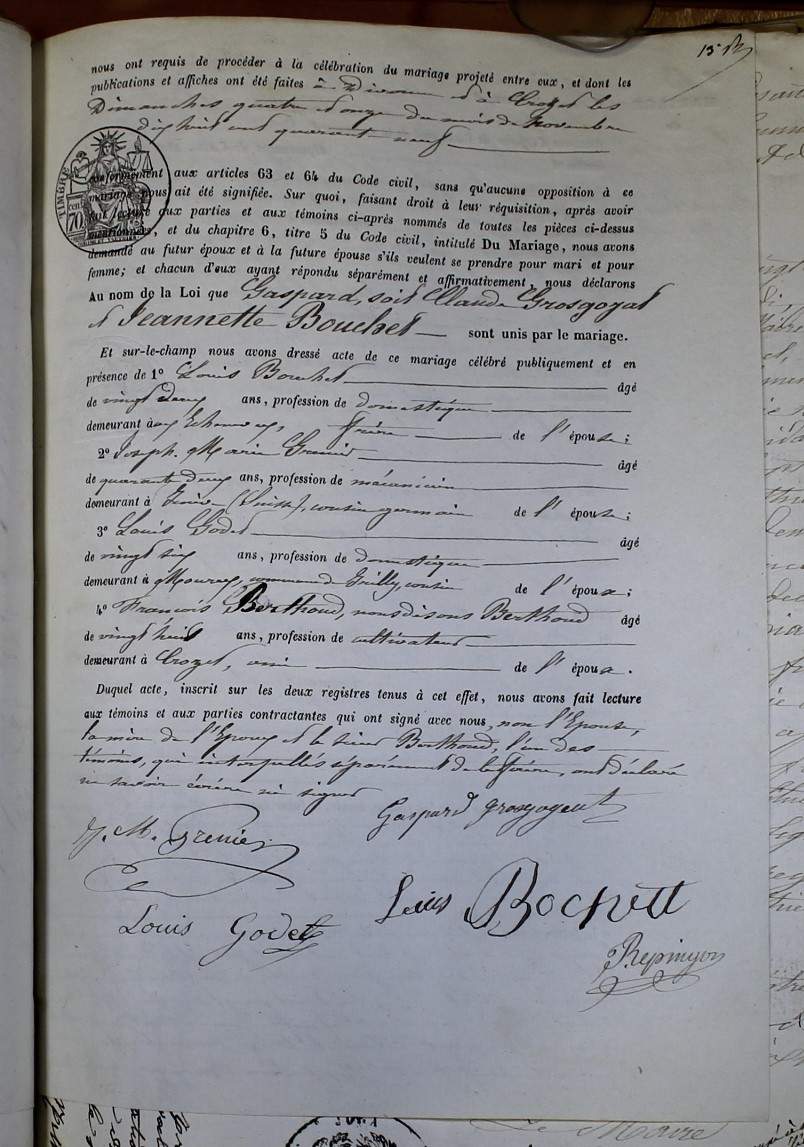 15
nous ont requis de procéder à la célébration du mariage projeté entre eux, et dont les
publications et affiches ont été faites à Divonne et à Crozet les
Dimanches quatre et onze du mois de Novembre
dix huit cent quarante neuf
TIMBRE
70
conformément aux articles 63 et 64 du Code civil, sans qu'aucune opposition à ce
mariage nous ait été signifiée. Sur quoi, faisant droit à leur réquisition, après avoir
fait lecture aux parties et aux témoins ci-après nommés de toutes les pièces ci-dessus
mentionnées, et du chapitre 6, titre 5 du Code civil, intitulé Du Mariage, nous avons
demandé au futur époux et à la future épouse s'ils veulent se prendre pour mari et pour
femme; et chacun d'eux ayant répondu séparément et affirmativement, nous déclarons
Au nom de la Loi que Gaspard, soit Claude Grosgogeat
et Jeannette Bouchet sont unis par le mariage.
Et sur-le-champ nous avons dressé acte de ce mariage célébré publiquement et en
présence de 1° Louis Bouchet âgé
de vingt deux ans, profession de domestique
demeurant à frère de l'épouse;
2° Joseph Marie Grenier âgé
de quarante deux ans, profession de mécanicien
demeurant à Genève (Suisse), cousin germain de l'épouse;
3° Louis Godet âgé
de vingt six ans, profession de domestique
demeurant à Mourex, commune de Grilly, cousin de l'épouse;
4° François Berthoud, nous disons Berthoud âgé
de vingt huit ans, profession de cultivateur
demeurant à Crozet, ami de l'époux.
Duquel acte, inscrit sur les deux registres tenus à cet effet, nous avons fait lecture
aux témoins et aux parties contractantes qui ont signé avec nous, non l'Epouse,
la mère de l'Epoux et le sieur Berthoud, l'un des
témoins, qui interpellés séparément de le faire, ont déclaré
ne savoir écrire ni signer
Gaspard grosgogeat
J. M. Grenier
Louis Bochett
Louis Godet
Repingon